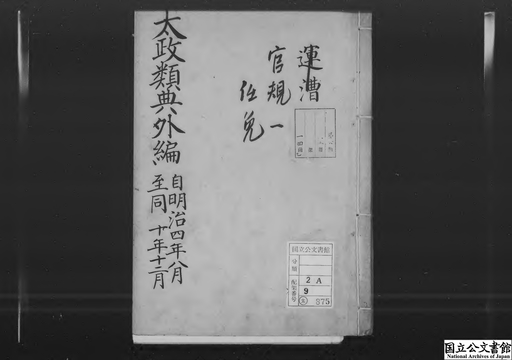 運漕
官規一
任免
太政類典外編
自明治四年八月
至同十年十二月
国立公文書館
分類
配架番号
2 A
9
875
国立公文書館
National Archives of Japan